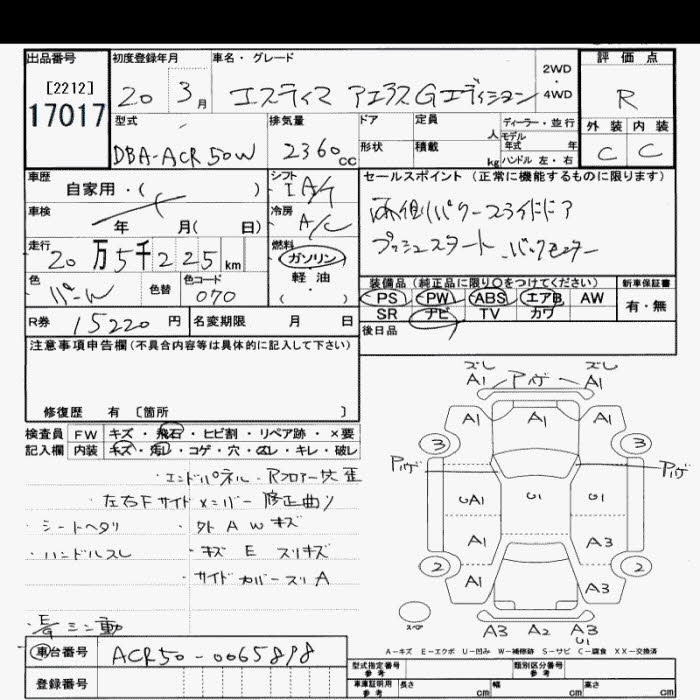 出品番号
[2212]
17017
初度登録年月
20 3月
車名・グレード
エスティマ アエラスGエディション
2WD
・
4WD
評価点
R
外装 内装
C C
型式
DBA-ACR50W
排気量
2360cc
ドア 定員 人
形状 積載 kg
ディーラー・並行
モデル
年式 年
ハンドル 左・右
車歴
自家用・( )
車検
年 月( 日)
走行
20万5千225km
色
パールW
色替
色コード
070
シフト
IA/T
冷房
A/C
燃料
ガソリン
軽油
・( )
セールスポイント (正常に機能するものに限ります)
両側パワースライドドア
プッシュスタート バックモニター
装備品 (純正品に限り○をつけてください)
PS PW ABS エアB AW
SR ナビ TV カワ
新車保証書
有・無
後日品
R券 15220円
名変期限 月 日
注意事項申告欄 (不具合内容等は具体的に記入して下さい)
修復歴 有 〔箇所 〕
検査員 FW キズ・飛石・ヒビ割・リペア跡・×要
記入欄 内装 キズ・汚れ・コゲ・穴・スレ・キレ・破レ
・エンドパネル・Rフロアー
左右Fサイドメンバー修正曲リ
・シートヘタリ
・外AWキズ
・ハンドルスレ
・キズ E スリキズ
・サイドカバースリ A
ズレ
A1
アゲ
ズレ
A1
A1 A1 A1
3 3
アゲ アゲ
UA1 U1 U1
A1 A3
2 2
A1 A3
スペア
A3 A2 A3
U1
A-キズ E-エクボ U-凹み W-補修跡 S-サビ C-腐食 XX-交換済
車台番号
ACR50-0065898
登録番号
型式指定番号
参考
類別区分番号
参考
車庫証明用
参考
長さ cm
幅 cm
高さ cm